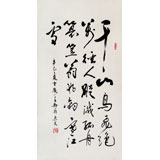 千山鳥飛絕
萬徑人蹤滅孤舟
蓑笠翁獨釣寒江
雪